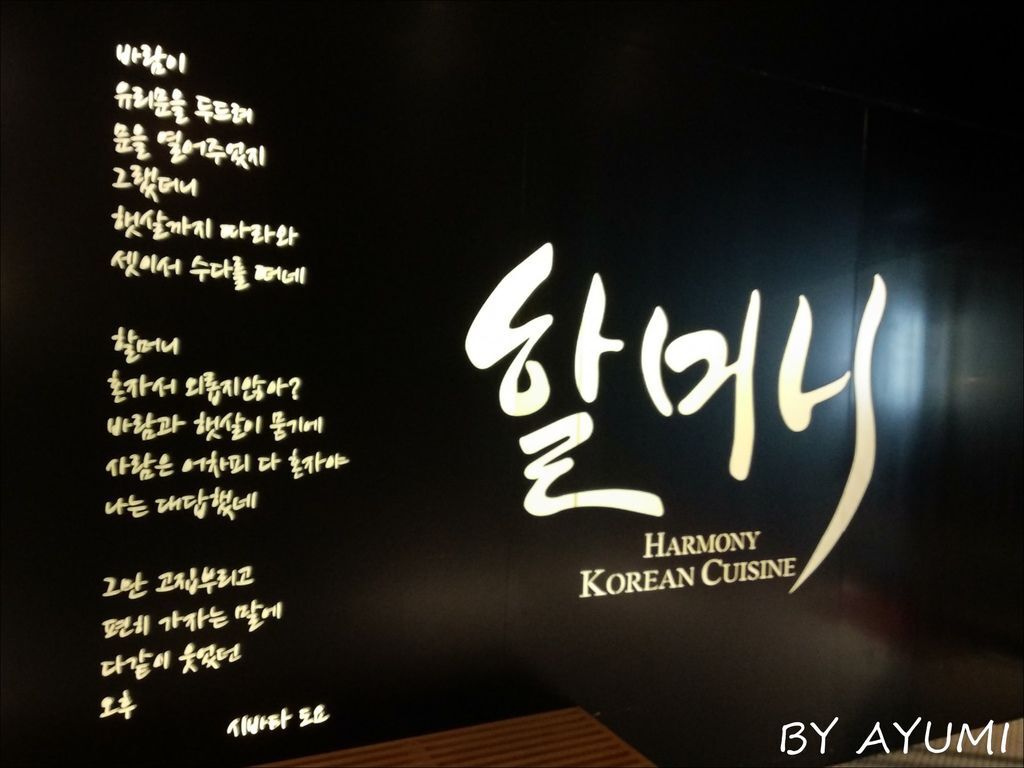 바람이
유리문을 두드려
문을 열어주었지
그랬더니
햇살까지 따라와
셋이서 수다를 떠네

할머니
혼자서 외롭지않아?
바람과 햇살이 묻기에
사람은 어차피 다 혼자야
나는 대답했네

그만 고집부리고
편히 가자는 말에
다같이 웃었던
오후
시바타 도요
할머니
HARMONY
KOREAN CUISINE
BY AYUMI